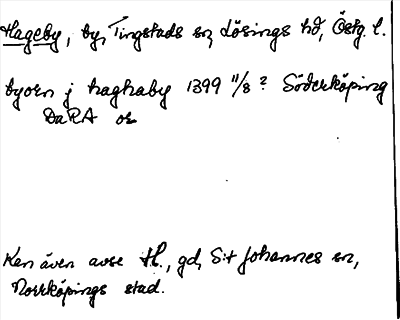 Hageby, by, Tingstads sn, Lösings hd, Östg. l.
byorn j haghaby 1399 11/8? Söderköping
DaRA or
Kan även avse H., gd, S:t Johannes sn,
Norrköpings stad.